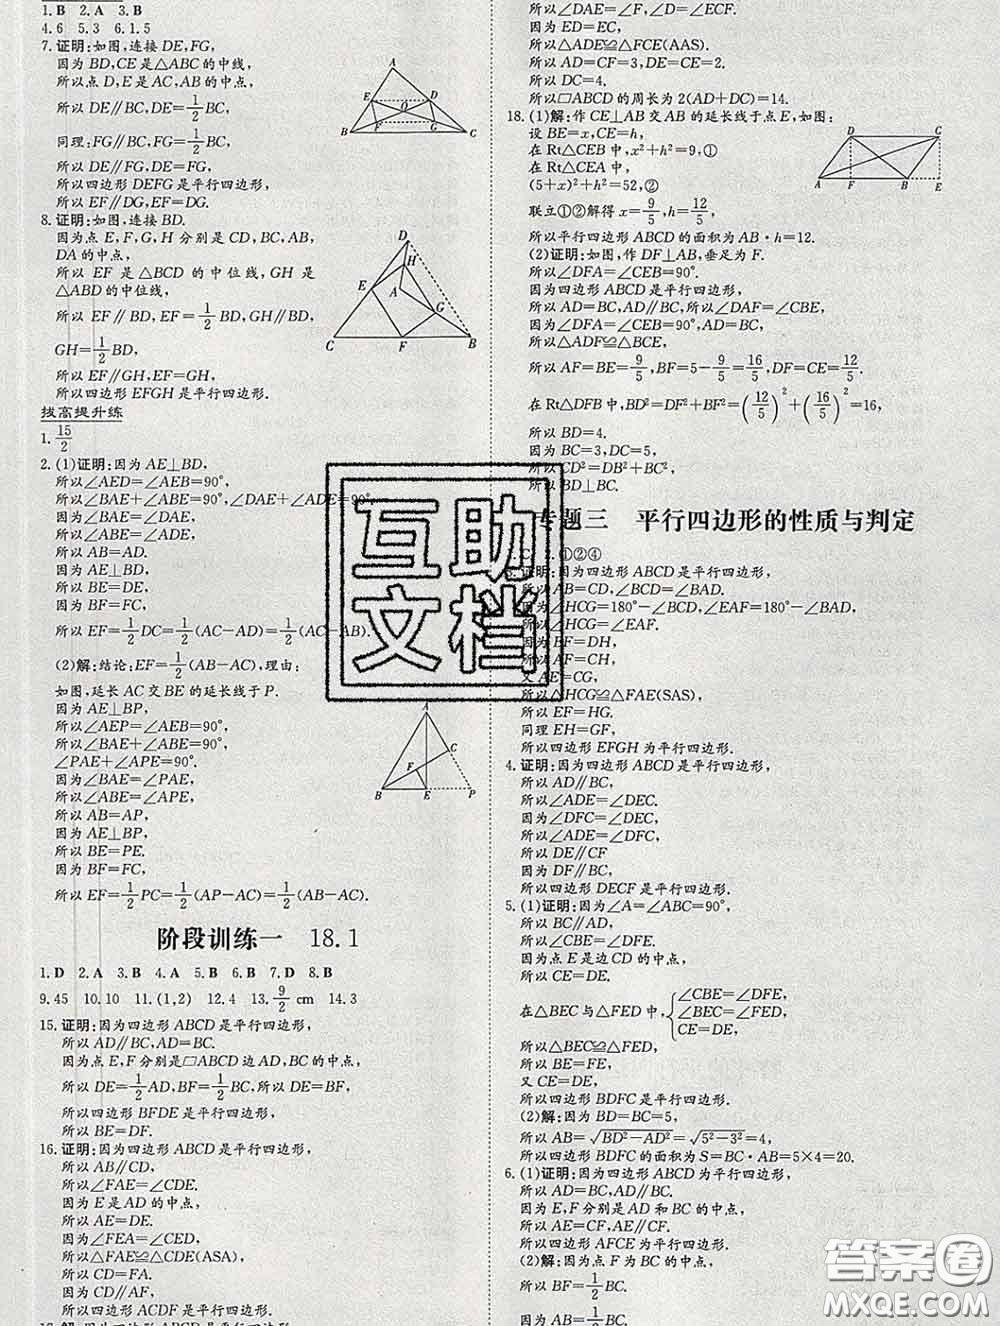 1.B 2.A 3.B
4.6 5.3 6.1.5
7.证明:如图,连接 DE,FG,
因为 BD,CE 是△ABC 的中线,
所以点 D,E 是 AC,AB 的中点,
所以 DE∥BC,DE=1/2BC,
同理:FG∥BC,FG=1/2BC,
所以 DE∥FG,DE=FG,
所以四边形 DEFG 是平行四边形,
所以 EF∥DG,EF=DG.
8.证明:如图,连接 BD.
因为点 E,F,G,H 分别是 CD,BC,AB,
DA 的中点,
所以 EF 是 △BCD 的中位线,GH 是
△ABD 的中位线,
所以 EF∥BD,EF=1/2BD,GH∥BD,
GH=1/2BD,
所以 EF∥GH,EF=GH,
所以四边形 EFGH 是平行四边形.
拔高提升练
1.15/2
2.(1)证明:因为 AE⊥BD,
所以∠AED=∠AEB=90°,
所以∠BAE+∠ABE=90°,∠DAE+∠ADE=90°,
因为∠BAE=∠DAE,
所以∠ABE=∠ADE,
所以 AB=AD.
因为 AE⊥BD,
所以 BE=DE.
因为 BF=FC,
所以 EF=1/2DC=1/2(AC-AD)=1/2(AC-AB).
(2)解:结论:EF=1/2(AB-AC),理由:
如图,延长 AC 交 BE 的延长线于 P.
因为 AE⊥BP,
所以∠AEP=∠AEB=90°,
所以∠BAE+∠ABE=90°,
∠PAE+∠APE=90°.
因为∠BAE=∠PAE,
所以∠ABE=∠APE,
所以 AB=AP,
因为 AE⊥BP,
所以 BE=PE.
因为 BF=FC,
所以 EF=1/2PC=1/2(AP-AC)=1/2(AB-AC).
阶段训练一 18.1
1.D 2.A 3.B 4.A 5.B 6.B 7.D 8.B
9.45 10.10 11.(1,2) 12.4 13.9/2 cm 14.3
15.证明:因为四边形 ABCD 是平行四边形,
所以 AD∥BC,AD=BC.
因为点 E,F 分别是□ABCD 边 AD,BC 的中点,
所以 DE=1/2AD,BF=1/2BC,所以 DE=BF,
所以四边形 BFDE 是平行四边形,
所以 BE=DF.
16.证明:因为四边形 ABCD 是平行四边形,
所以 AB∥CD,
所以∠FAE=∠CDE.
因为 E 是 AD 的中点,
所以 AE=DE.
因为∠FEA=∠CED,
所以△FAE≌△CDE(ASA),
所以 CD=FA.
因为 CD∥AF,
所以四边形 ACDF 是平行四边形.
所以∠DAE=∠F,∠D=∠ECF.
因为 ED=EC,
所以△ADE≌△FCE(AAS).
所以 AD=CF=3,DE=CE=2.
所以 DC=4.
所以□ABCD 的周长为 2(AD+DC)=14.
18.(1)解:作 CE⊥AB 交 AB 的延长线于点 E,如图:
设 BE=x,CE=h,
在 Rt△CEB 中,x²+h²=9,①
在 Rt△CEA 中,
(5+x)²+h²=52,②
联立①②解得 x=9/5,h=12/5,
所以平行四边形 ABCD 的面积为 AB·h=12.
(2)证明:如图,作 DF⊥AB,垂足为 F.
所以∠DFA=∠CEB=90°.
因为四边形 ABCD 是平行四边形,
所以 AD=BC,AD∥BC,所以∠DAF=∠CBE,
因为∠DFA=∠CEB=90°,AD=BC,
所以△ADF≌△BCE,
所以 AF=BE=9/5,BF=5-9/5=16/5,DF=CE=12/5.
在 Rt△DFB 中,BD²=DF²+BF²=(12/5)²+(16/5)²=16,
所以 BD=4.
因为 BC=3,DC=5,
所以 CD²=DB²+BC²,
所以 BD⊥BC.
专题三 平行四边形的性质与判定
1.C 2.①②④
3.证明:因为四边形 ABCD 是平行四边形,
所以 AB=CD,∠BCD=∠BAD.
因为∠HCG=180°-∠BCD,∠EAF=180°-∠BAD,
所以∠HCG=∠EAF.
因为 BF=DH,
所以 AF=CH,
又 AE=CG,
所以△HCG≌△FAE(SAS),
所以 EF=HG.
同理 EH=GF,
所以四边形 EFGH 为平行四边形.
4.证明:因为四边形 ABCD 是平行四边形,
所以 AD∥BC,
所以∠ADE=∠DEC.
因为∠DFC=∠DEC,
所以∠ADE=∠DFC,
所以 DE∥CF
因为 DF∥BC,
所以四边形 DECF 是平行四边形.
5.(1)证明:因为∠A=∠ABC=90°,
所以 BC∥AD,
所以∠CBE=∠DFE.
因为点 E 是边 CD 的中点,
所以 CE=DE.
在△BEC 与△FED 中,{∠CBE=∠DFE,
∠BEC=∠FED,
CE=DE,
所以△BEC≌△FED,
所以 BE=FE,
又 CE=DE,
所以四边形 BDFC 是平行四边形.
(2)解:因为 BD=BC=5,
所以 AB=√(BD²-AD²)=√(5²-3²)=4,
所以四边形 BDFC 的面积为 S=BC·AB=5×4=20.
6.(1)证明:因为四边形 ABCD 为平行四边形,
所以 AD=BC,AD∥BC.
因为 E,F 分别是 AD 和 BC 的中点,
所以 AE=CF,AE∥CF,
所以四边形 AFCE 为平行四边形.
(2)解:因为点 F 为 BC 的中点,
所以 BF=1/2BC.
因为 AB=1/2BC,
互助
文档
答案圈
MXQE.COM